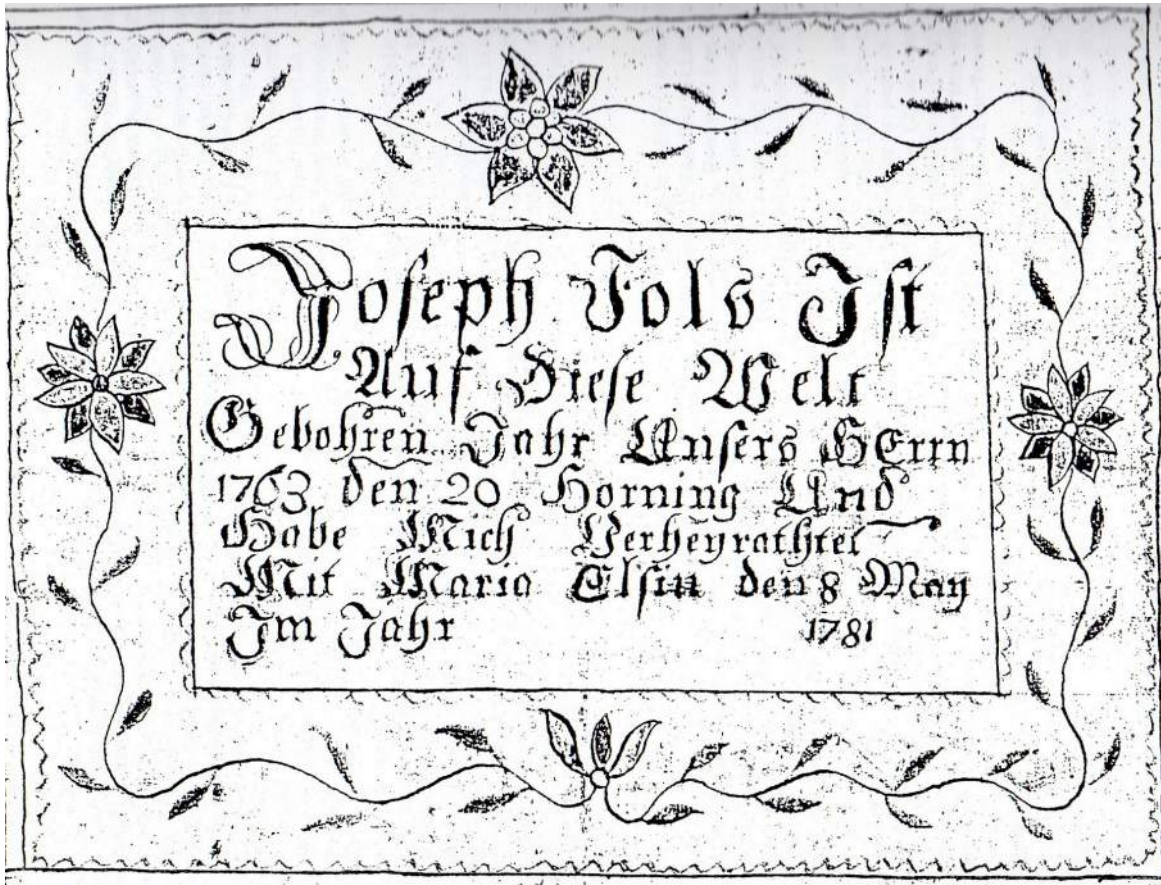 Joseph Fols Ist
Auf Diese Welt
Gebohren Jahr Unsers HErrn
1763 den 20 Horning Und
Habe Mich Verheyrathtet
Mit Maria Elsin den 8 May
Im Jahr 1781